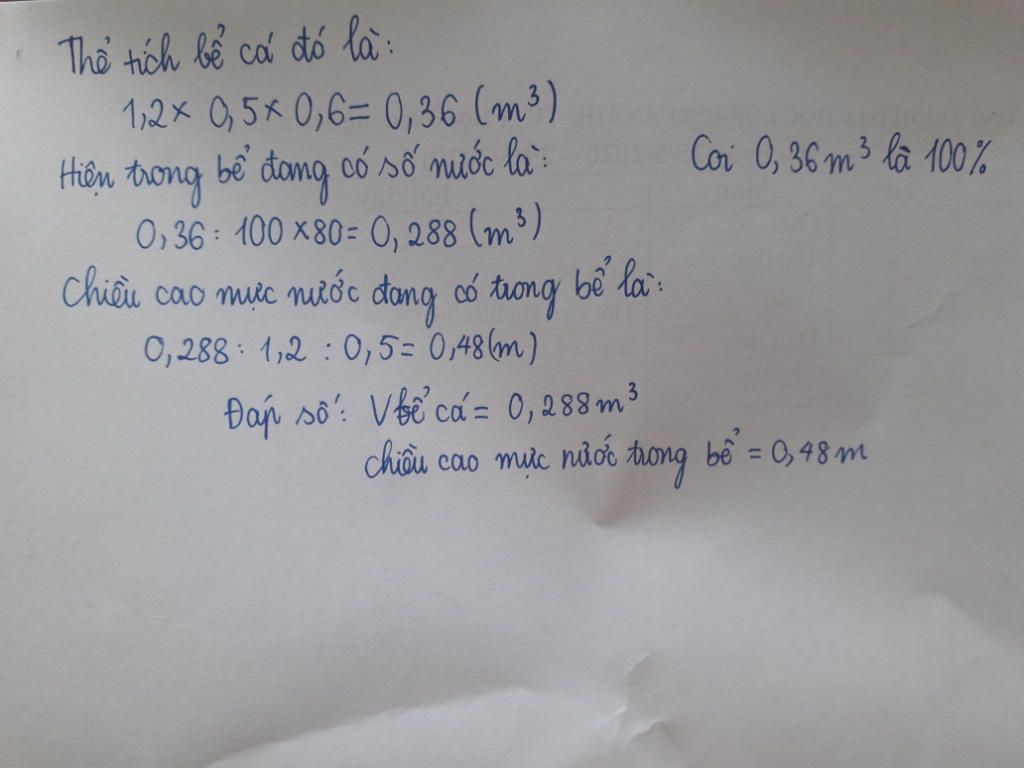 Thể tích bể cá đó là:
1,2 × 0,5 × 0,6 = 0,36 (m³)
Hiện trong bể đang có số nước là: Coi 0,36 m³ là 100%
0,36 : 100 × 80 = 0,288 (m³)
Chiều cao mực nước đang có trong bể là:
0,288 : 1,2 : 0,5 = 0,48 (m)
Đáp số: V bể cá = 0,288 m³
chiều cao mực nước trong bể = 0,48 m